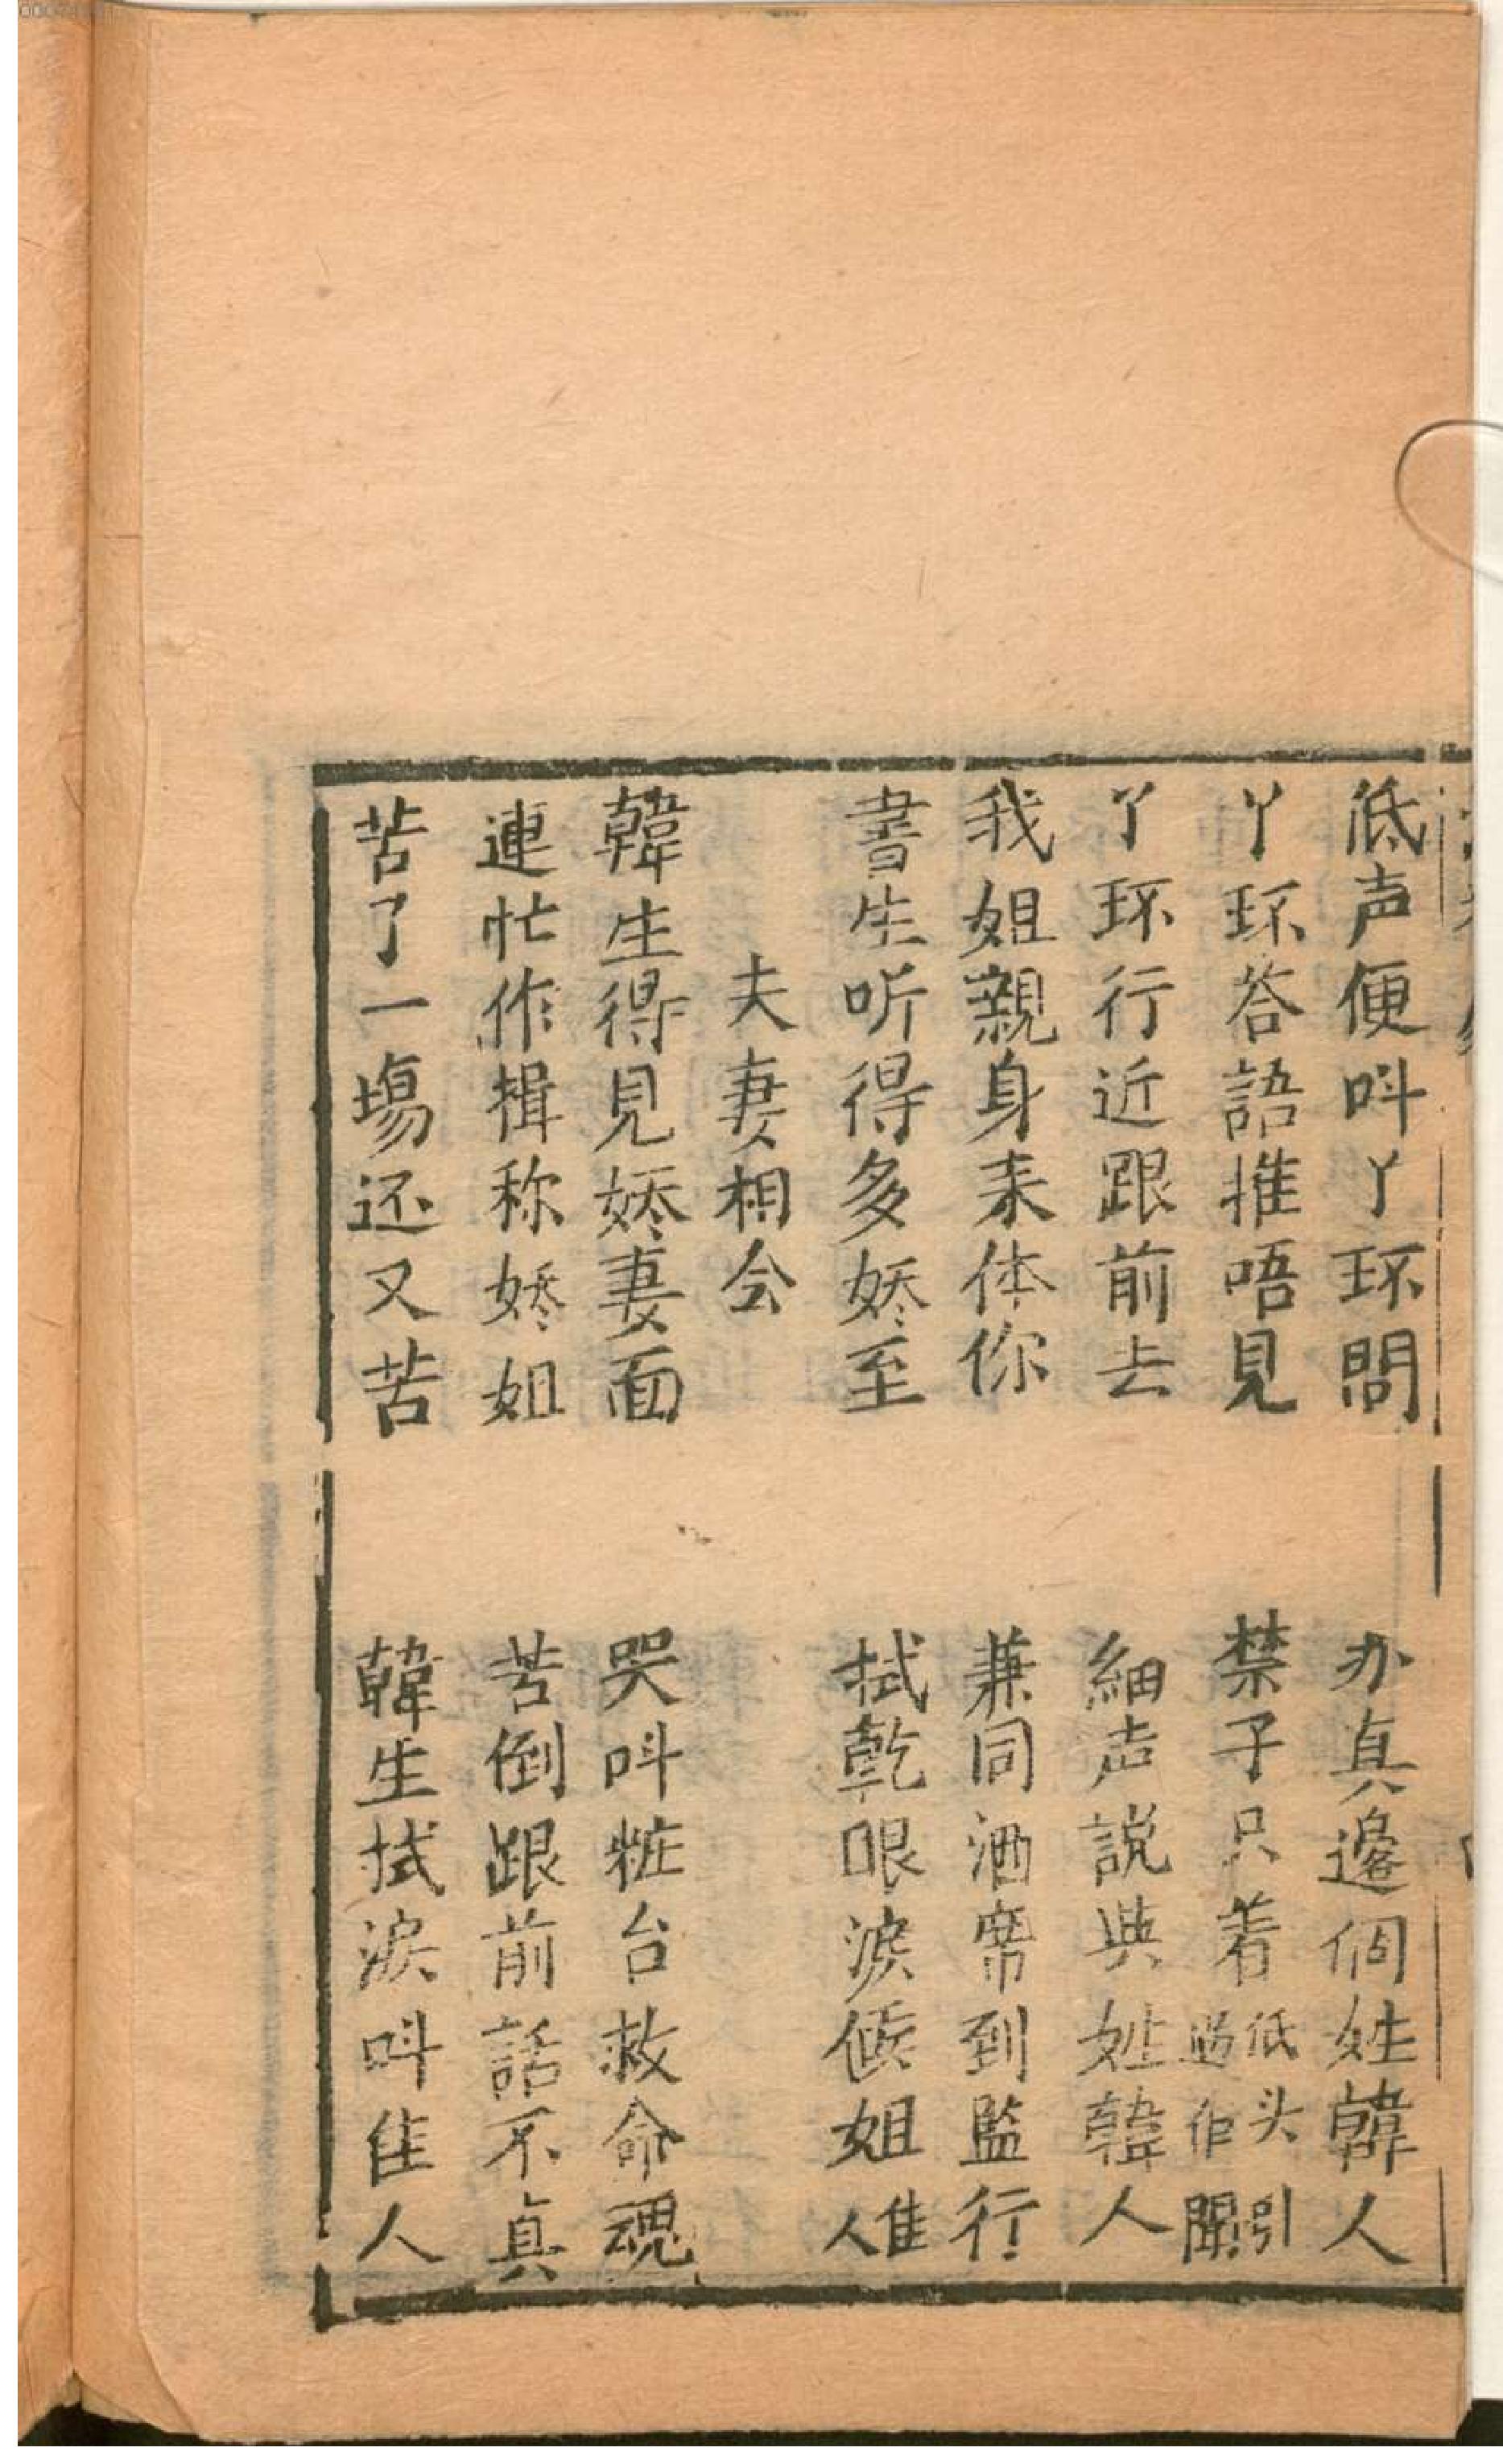 低声便呌丫环問　办真邊個姓韓人
丫环荅語推唔見　禁子只着低头引過作聞
丫环行近跟前去　細声説與姓韓人
我姐親身来体你　兼同酒席到監行
書生听得多娇至　拭乾眼淚候姐佳人
夫妻相会
韓生得見娇妻面　哭呌粧台救命魂
連忙作揖称娇姐　苦倒跟前話不真
苦了一塲还又苦　韓生拭淚呌佳人